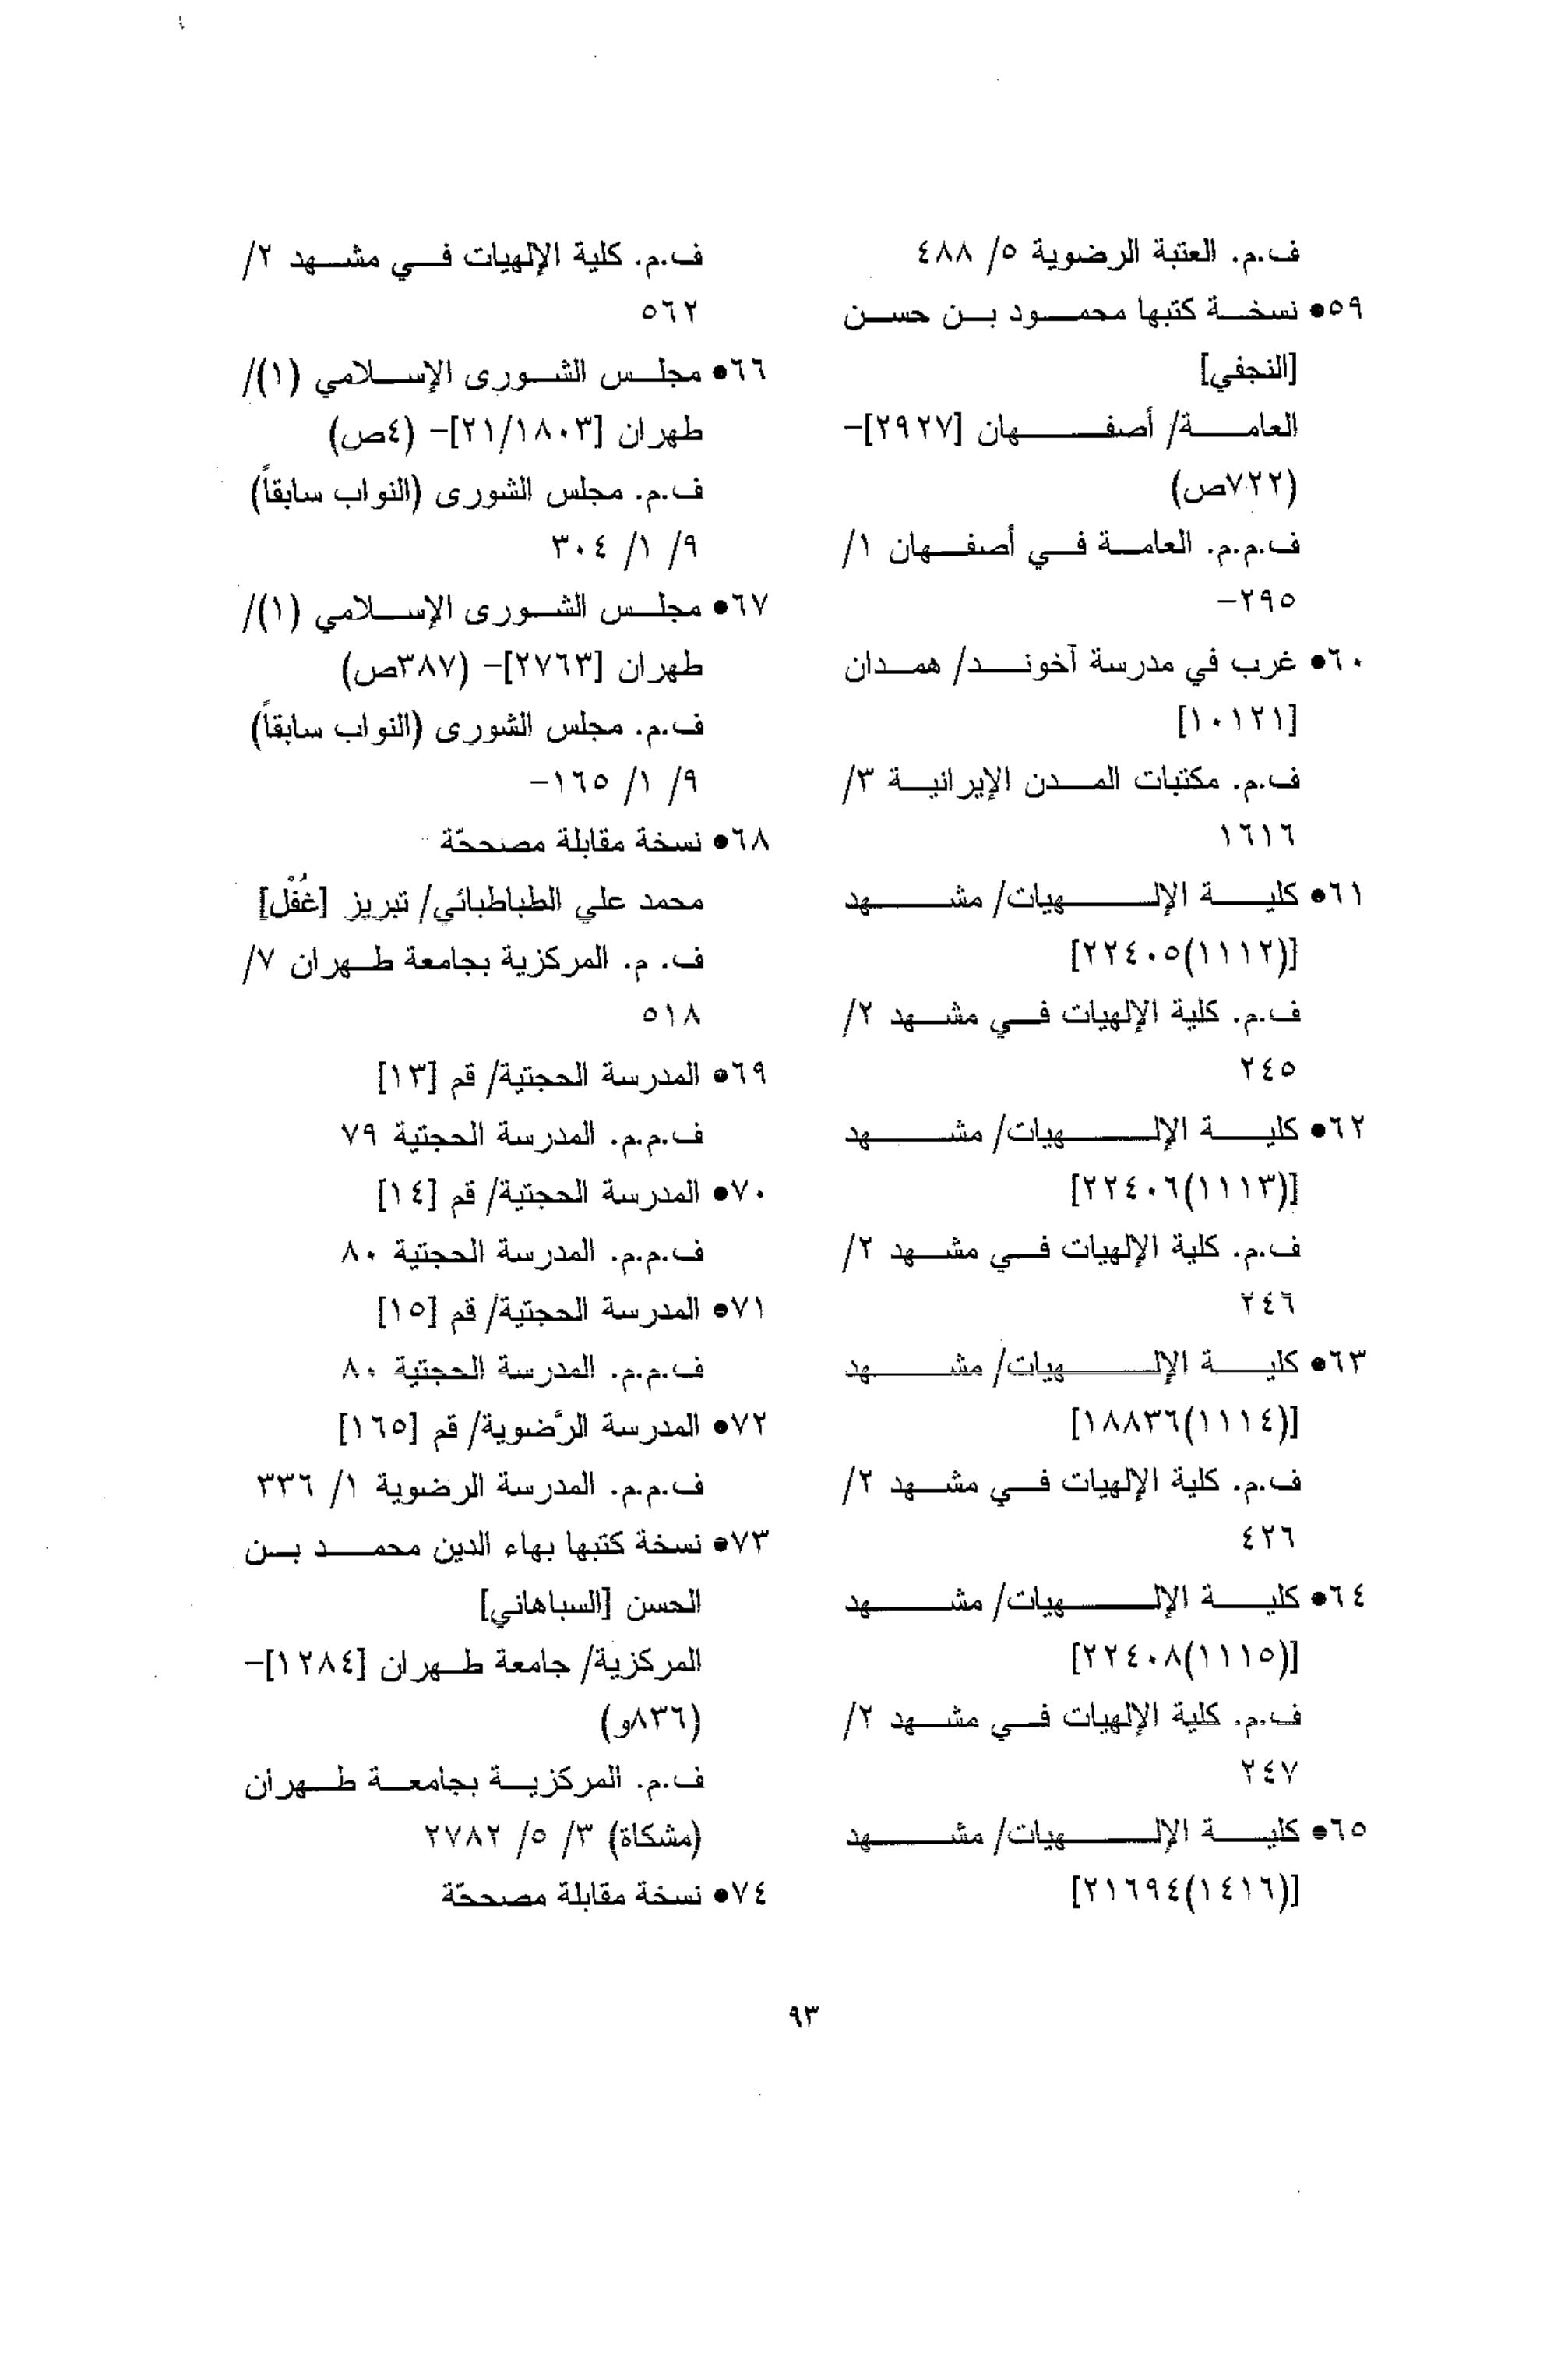 ف.م. العتبة الرضوية ٥/ ٤٨٨
٥٩● نسخة كتبها محمود بن حسن
[النجفي]
العامة/ أصفهان [٢٩٢٧]-
(٧٢٢ص)
ف.م.م. العامة في أصفهان ١/
٢٩٥-
٦٠● غرب في مدرسة آخوند/ همدان
[١٠١٢١]
ف.م. مكتبات المدن الإيرانية ٣/
١٦١٦
٦١● كلية الإلهيات/ مشهد
[(١١١٢)٢٢٤٠٥]
ف.م. كلية الإلهيات في مشهد ٢/
٢٤٥
٦٢● كلية الإلهيات/ مشهد
[(١١١٣)٢٢٤٠٦]
ف.م. كلية الإلهيات في مشهد ٢/
٢٤٦
٦٣● كلية الإلهيات/ مشهد
[(١١١٤)١٨٨٣٦]
ف.م. كلية الإلهيات في مشهد ٢/
٤٢٦
٦٤● كلية الإلهيات/ مشهد
[(١١١٥)٢٢٤٠٨]
ف.م. كلية الإلهيات في مشهد ٢/
٢٤٧
٦٥● كلية الإلهيات/ مشهد
[(١٤١٦)٢١٦٩٤]
ف.م. كلية الإلهيات في مشهد ٢/
٥٦٢
٦٦● مجلس الشورى الإسلامي (١)/
طهران [٢١/١٨٠٣]- (٤ص)
ف.م. مجلس الشورى (النواب سابقاً)
٩/ ١/ ٣٠٤
٦٧● مجلس الشورى الإسلامي (١)/
طهران [٢٧٦٣]- (٣٨٧ص)
ف.م. مجلس الشورى (النواب سابقاً)
٩/ ١/ ١٦٥-
٦٨● نسخة مقابلة مصححّة
محمد علي الطباطبائي/ تبريز [غُفْل]
ف. م. المركزية بجامعة طهران ٧/
٥١٨
٦٩● المدرسة الحجتية/ قم [١٣]
ف.م.م. المدرسة الحجتية ٧٩
٧٠● المدرسة الحجتية/ قم [١٤]
ف.م.م. المدرسة الحجتية ٨٠
٧١● المدرسة الحجتية/ قم [١٥]
ف.م.م. المدرسة الحجتية ٨٠
٧٢● المدرسة الرَّضوية/ قم [١٦٥]
ف.م.م. المدرسة الرضوية ١/ ٣٣٦
٧٣● نسخة كتبها بهاء الدين محمد بن
الحسن [السباهاني]
المركزية/ جامعة طهران [١٢٨٤]-
(٨٣٦و)
ف.م. المركزية بجامعة طهران
(مشكاة) ٣/ ٥/ ٢٧٨٢
٧٤● نسخة مقابلة مصححّة
٩٣